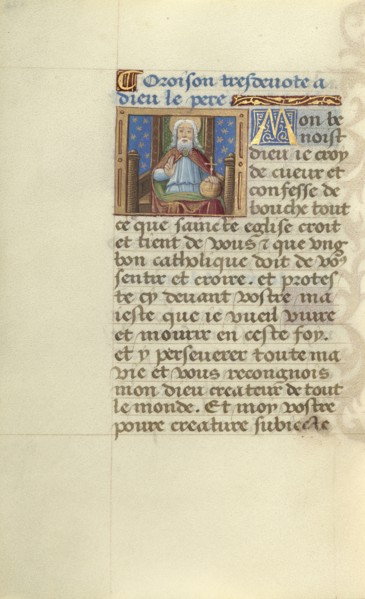 Oroison tresdevote a
dieu le pere
Mon be
noist
dieu ie croy
de cueur et
confesse de
bouche tout
ce que saincte eglise croit
et tient de vous ⁊ que ung
bon catholique doit de vo9
sentir et croire. et protes
te cy devant vostre ma
ieste que ie vueil vivre
et mourir en ceste foy.
et y perseverer toute ma
vie et vous recongnois
mon dieu createur de tout
le monde. Et moy vostre
povre creature subiecte